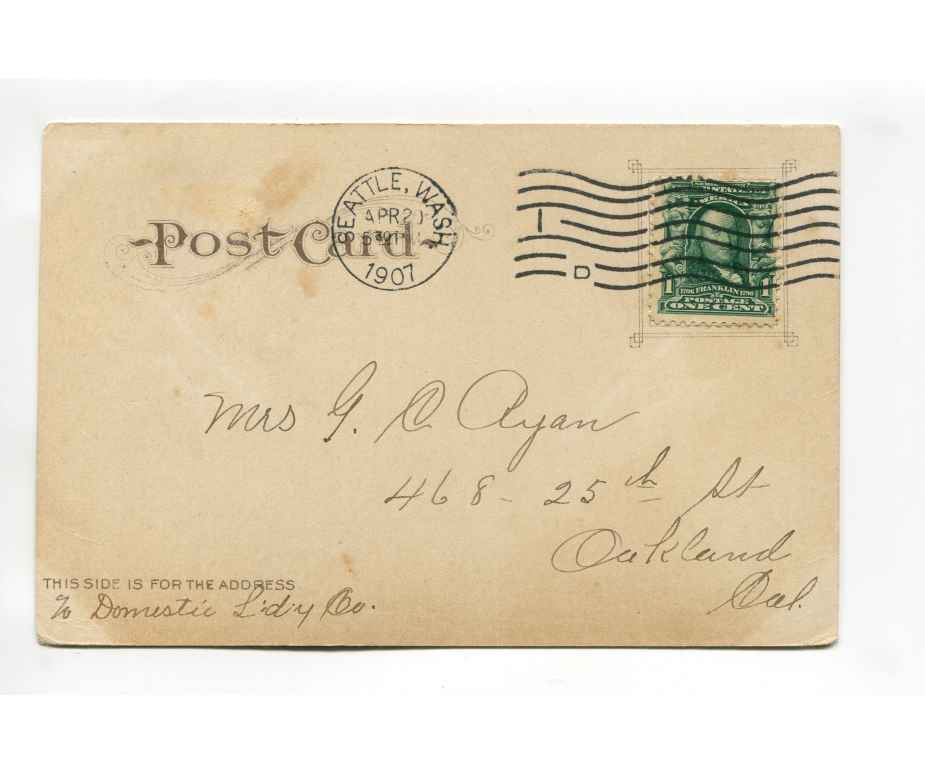 Post Card
SEATTLE, WASH
APR 2
1907
D
1 1
1706 FRANKLIN 1790
POSTAGE
ONE CENT
Mrs G. C Ryan
468 - 25th St
Oakland
Cal.
THIS SIDE IS FOR THE ADDRESS
c/o Domestic L'd'y Co.